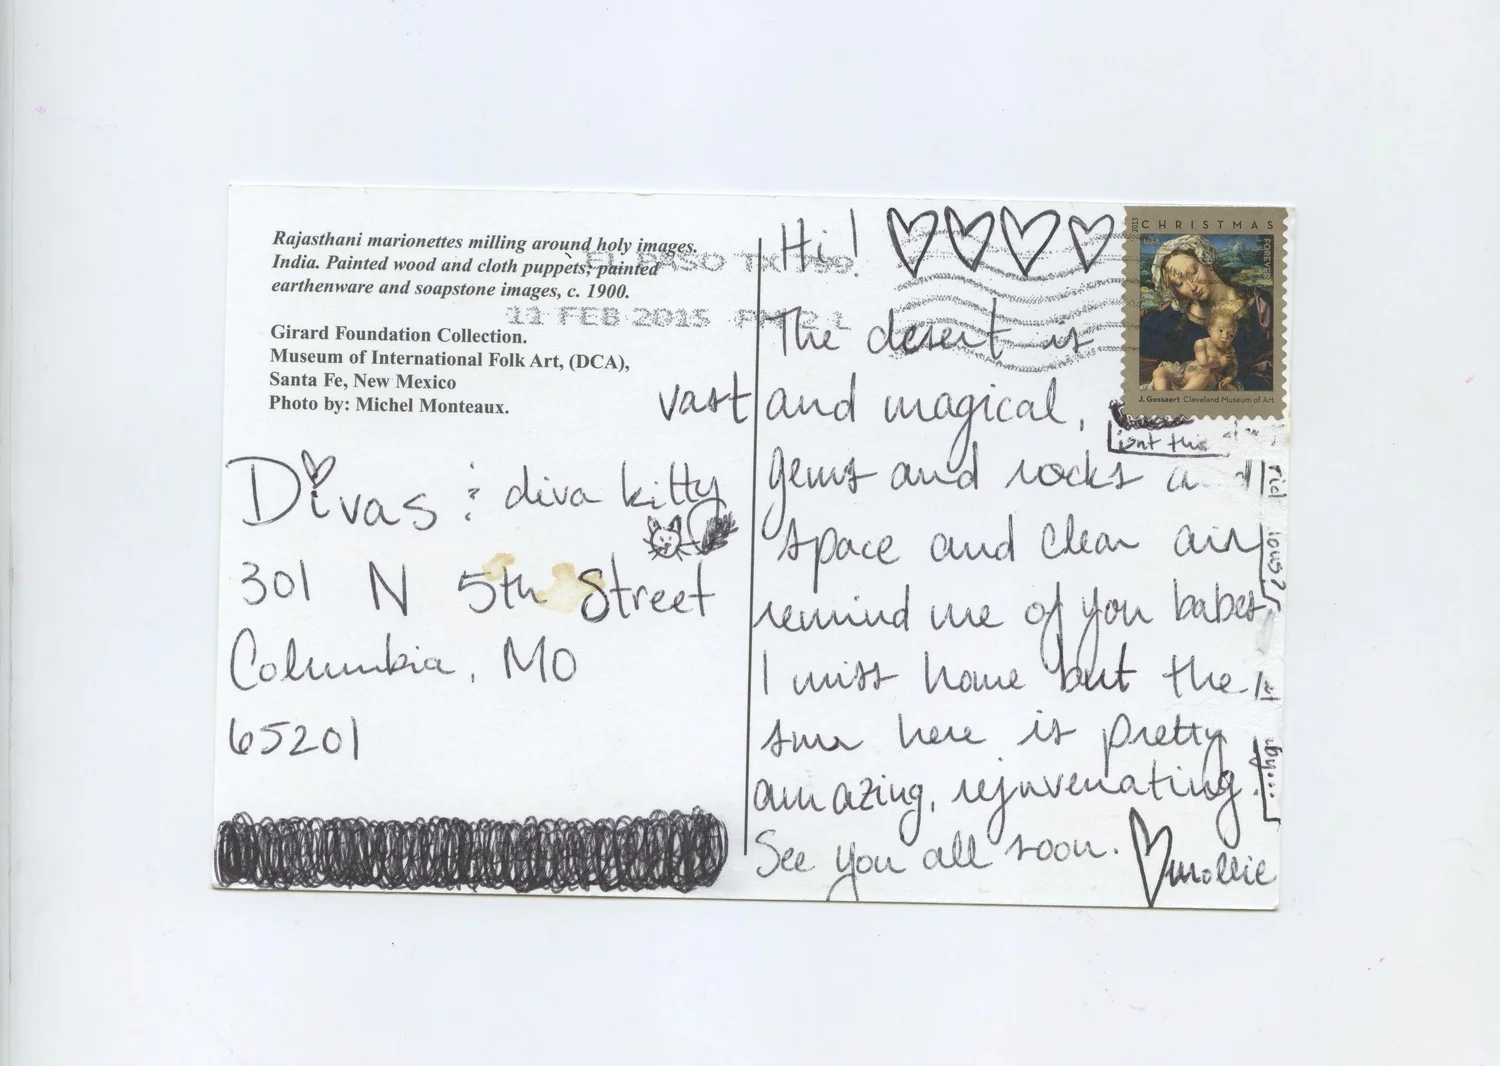 Rajasthani marionettes milling around holy images.
India. Painted wood and cloth puppets; painted
earthenware and soapstone images, c. 1900.
Girard Foundation Collection.
Museum of International Folk Art, (DCA),
Santa Fe, New Mexico
Photo by: Michel Monteaux.
EL PASO TX 799
11 FEB 2015 PM 2 L
Divas & diva kitty
301 N 5th Street
Columbia, MO
65201
Hi!
The desert is
vast and magical,
gems and rocks and
space and clean air
remind me of you babes
I miss home but the
sun here is pretty
amazing, rejuvenating.
See you all soon.
mollie
2013
CHRISTMAS
FOREVER
USA
J. Gossaert Cleveland Museum of Art
isnt this